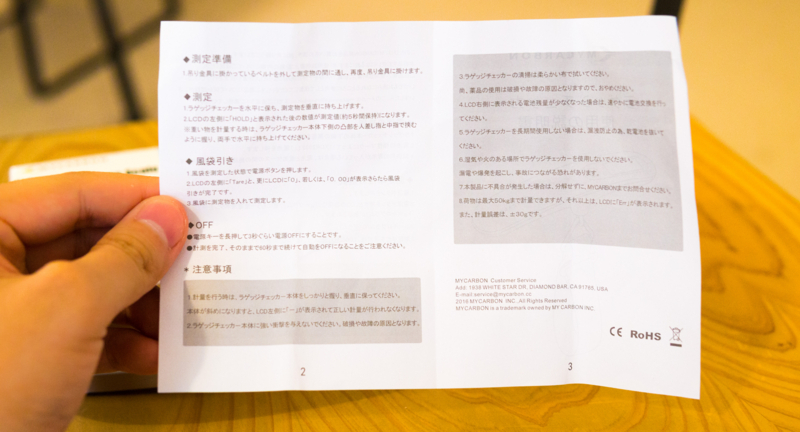 ◆測定準備
1.吊り金具に掛かっているベルトを外して測定物の間に通し、再度、吊り金具に掛けます。
◆測定
1.ラゲッジチェッカーを水平に保ち、測定物を垂直に持ち上げます。
2.LCDの左側に「HOLD」と表示された後の数値が測定値(約5秒間保持)になります。
※重い物を計量する時は、ラゲッジチェッカー本体下側の凸部を人差し指と中指で挟む
ように握り、両手で水平に持ち上げてください。
◆風袋引き
1.風袋を測定した状態で電源ボタンを押します。
2.LCDの左側に「Tare」と、更にLCDに「0」、若しくは、「0.00」が表示さらたら風袋
引きが完了です。
3.風袋に測定物を入れて測定します。
◆OFF
●電源キーを長押して2秒ぐらい電源OFFにすることです。
●計測を完了、そのままで90秒まで続けて自動をOFFになることをご注意ください。
注意事項
1.計量を行う時は、ラゲッジチェッカー本体をしっかりと握り、垂直に保ってください。
本体が斜めになりますと、LCD左側に「－」が表示されて正しい計量が行われなくなります。
2.ラゲッジチェッカー本体に強い衝撃を与えないでください。破損や故障の原因となります。
2
3.ラゲッジチェッカーの清掃は柔らかい布で拭いてください。
尚、薬品の使用は破損や故障の原因となりますので、おやめください。
4.LCD右側に表示される電池残量が少なくなった場合は、速やかに電池交換を行っ
てください。
5.ラゲッジチェッカーを長時間使用しない場合は、誤液防止の為、乾電池を抜いて
ください。
6.湿気や火のある場所でラゲッジチェッカーを使用しないでください。
漏電や爆発を起こし、事故につながる恐れがあります。
7.本製品に不具合が発生した場合は、分解せずに、MYCARBONまでお問合せください。
8.荷物は最大50kgまで計量できますが、それ以上は、LCDに「Err」が表示されます。
また、計量誤差は、±50gです。
MYCARBON Customer Service
Add: 1638 WHITE STAR DR, DIAMOND BAR, CA 91765, USA
E-mail:service@mycarbon.co
2016 MYCARBON. INC. All Rights Reserved
MYCARBON is a trademark owned by MYCARBON.INC.
CE RoHS
3